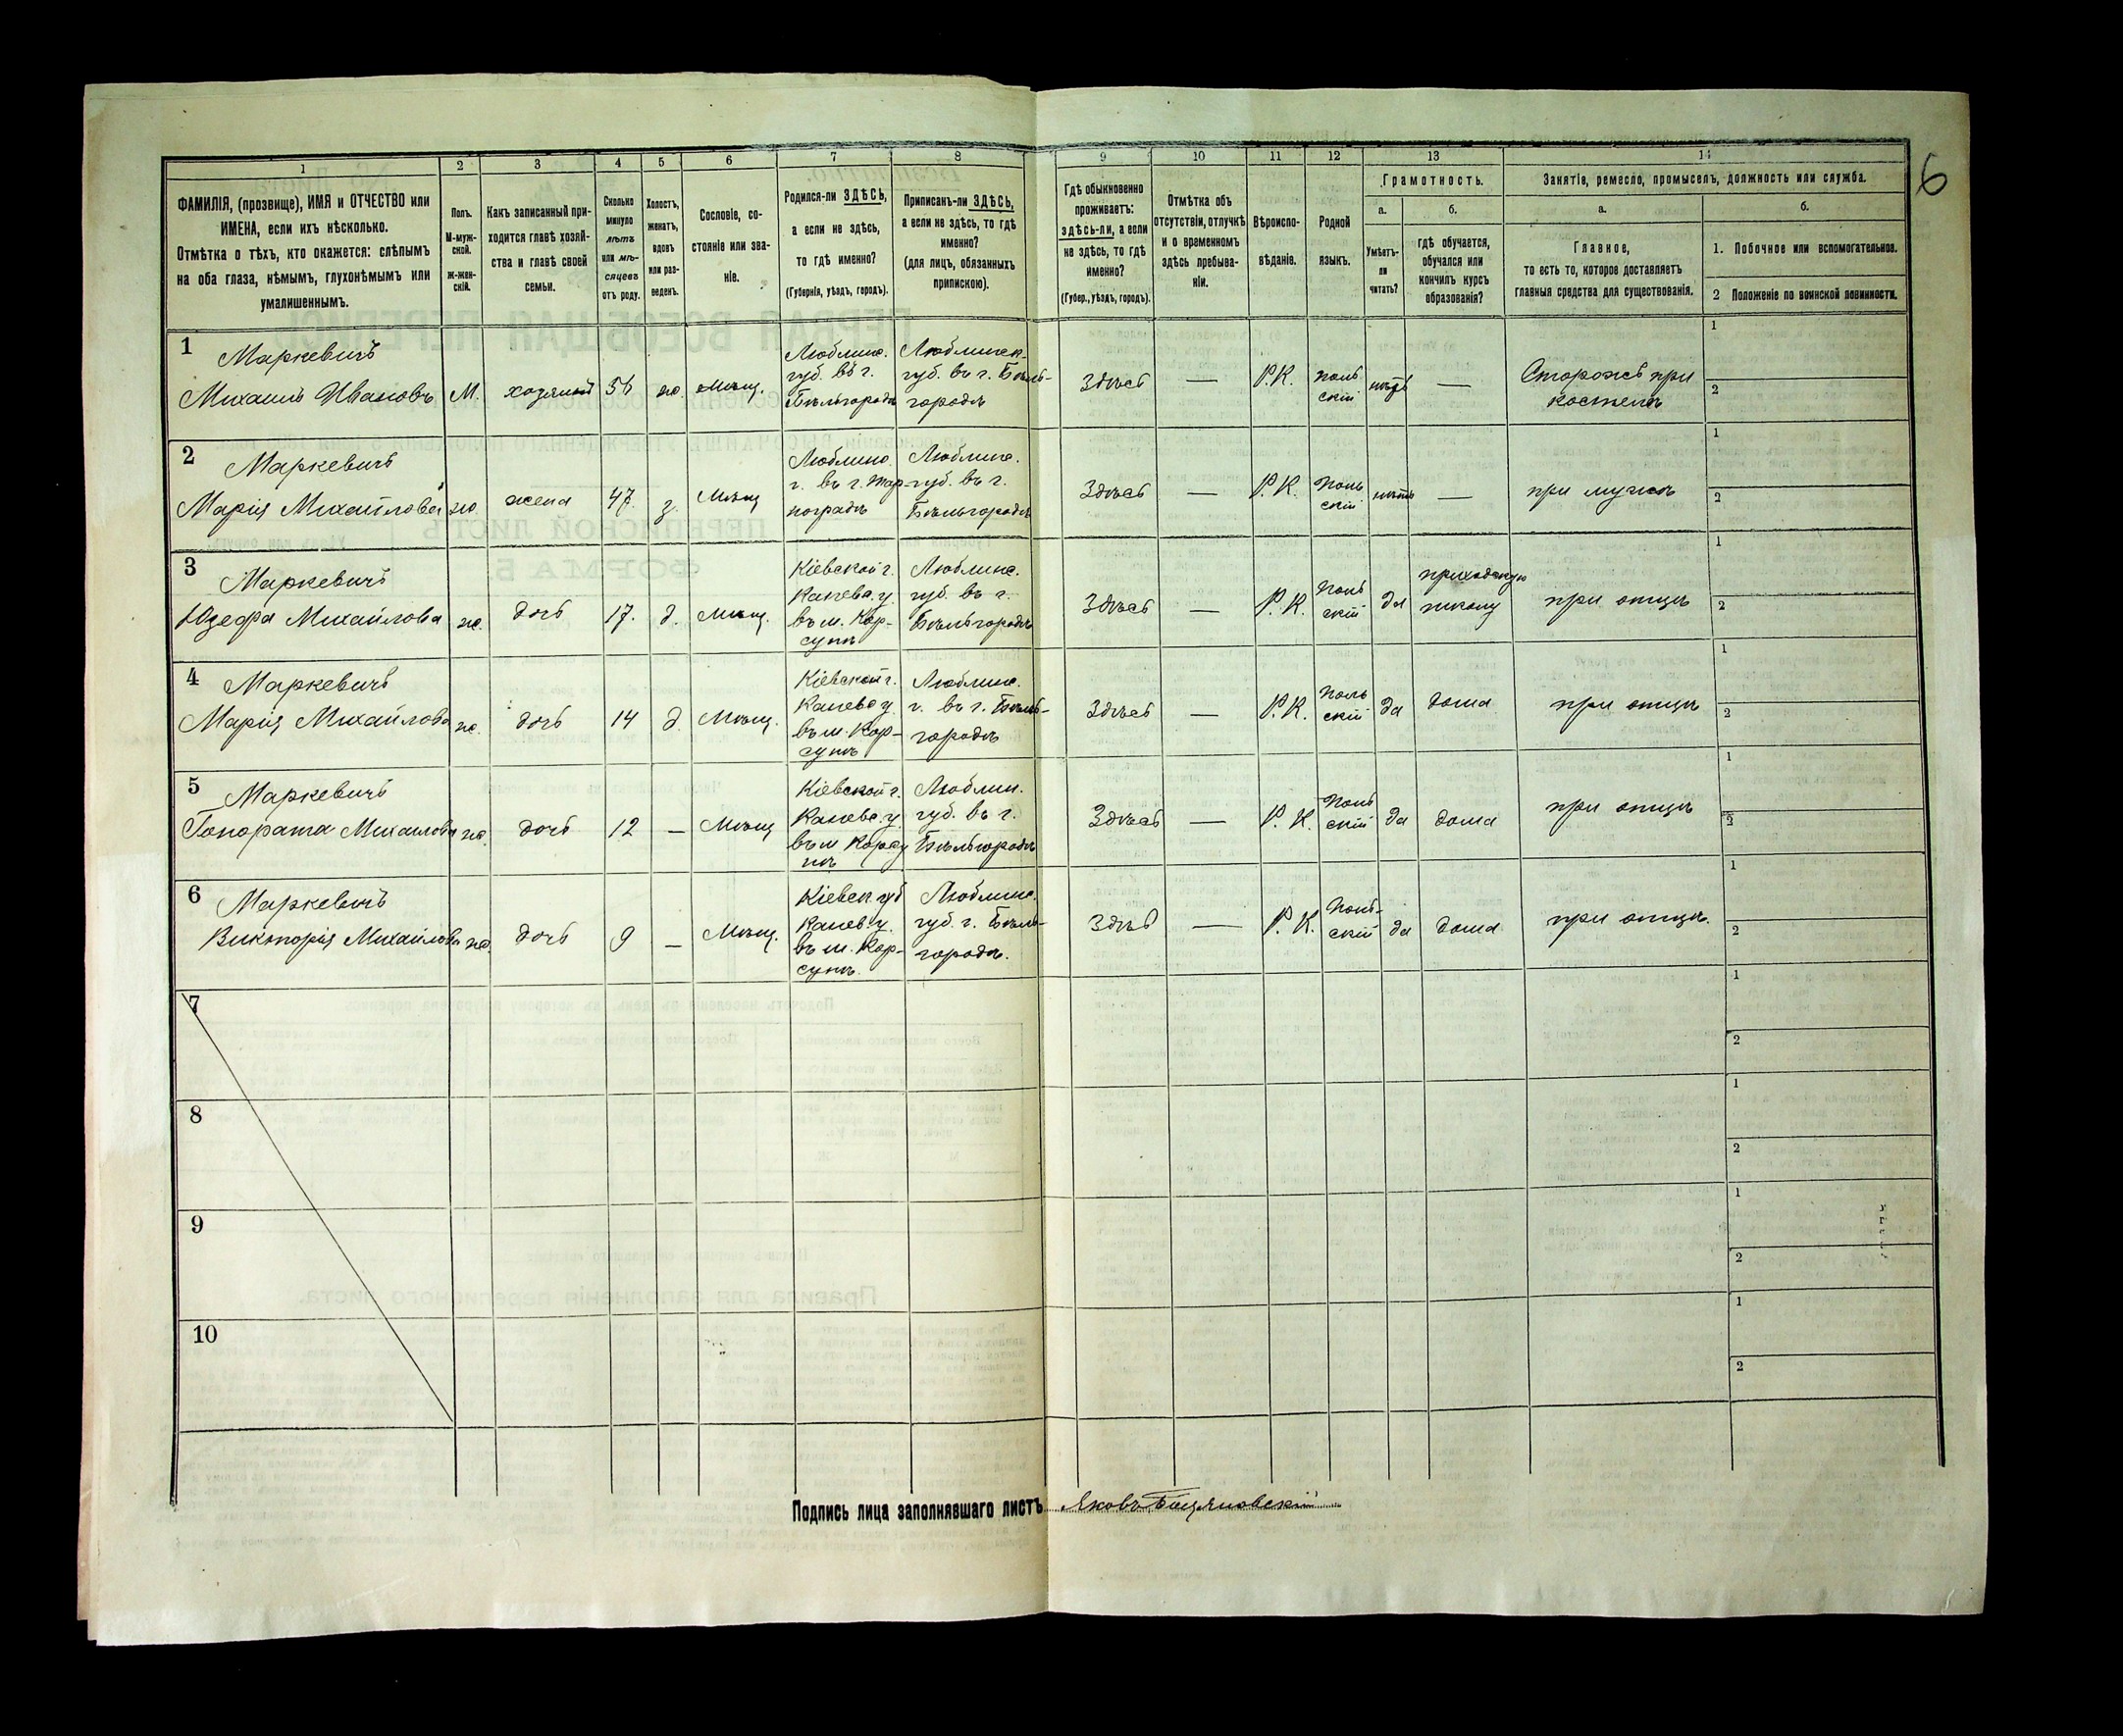 6
1
2
3
4
5
6
7
8
9
10
11
12
13
14
ФАМИЛІЯ, (прозвище), ИМЯ и ОТЧЕСТВО или
ИМЕНА, если ихъ нѣсколько.
Отмѣтка о тѣхъ, кто окажется: слѣпымъ
на оба глаза, нѣмымъ, глухонѣмымъ или
умалишеннымъ.
Полъ.
М-муж-
ской.
ж-жен-
скій.
Какъ записанный при-
ходится главѣ хозяй-
ства и главѣ своей
семьи.
Сколько
минуло
лѣтъ
или мѣ-
сяцевъ
отъ роду.
Холостъ,
женатъ,
вдовъ
или раз-
веденъ.
Сословіе, со-
стояніе или зва-
ніе.
Родился-ли ЗДѢСЬ,
а если не здѣсь,
то гдѣ именно?
(Губернія, уѣздъ, городъ).
Приписанъ-ли ЗДѢСЬ,
а если не здѣсь, то гдѣ
именно?
(для лицъ, обязанныхъ
припискою).
Гдѣ обыкновенно
проживаетъ:
здѣсь-ли, а если
не здѣсь, то гдѣ
именно?
(Губер., уѣздъ, городъ).
Отмѣтка объ
отсутствіи, отлучкѣ
и о временномъ
здѣсь пребыва-
ніи.
Вѣроиспо-
вѣданіе.
Родной
языкъ.
Грамотность.
а.
Умѣетъ-
ли
читать?
б.
гдѣ обучается,
обучался или
кончилъ курсъ
образованія?
Занятіе, ремесло, промыселъ, должность или служба.
а.
Главное,
то есть то, которое доставляетъ
главныя средства для существованія.
б.
1. Побочное или вспомогательное.
2 Положеніе по воинской повинности.
1
Маркевичъ
Михаилъ Ивановъ
М.
хозяинъ
мѣщ.
Люблинс.
губ. въ г.
Бѣльгородѣ
Люблинск.
губ. въ г. Бѣль-
городѣ
Здѣсь
—
Р.К.
поль
скій
нѣтъ
—
Сторожъ при
костелѣ
1
2
2
Маркевичъ
Марія Михайлова
ж.
жена
47.
з.
Мѣщ
Люблинс.
г. въ г. Тар-
ноградѣ
Люблинс.
губ. въ г.
Бѣльгородѣ
Здѣсь
—
Р.К.
Поль
скій
нѣтъ
—
при мужѣ
1
2
3
Маркевичъ
Юзефа Михайлова
ж.
дочь
17.
д.
Мѣщ.
Кіевской г.
Каневс. у.
въ м. Кор-
сунѣ
Люблинс.
губ. въ г.
Бѣльгородѣ
Здѣсь
—
Р.К.
Поль
скій
да
приходскую
школу
при отцѣ
1
2
4
Маркевичъ
Марія Михайлова
ж.
дочь
14
д.
Мѣщ.
Кіевской г.
Каневс у
въ м. Кор-
сунѣ
Люблинс.
г. въ г. Бѣль-
городѣ
Здѣсь
—
Р.К.
Поль
скій
да
дома
при отцѣ
1
2
5
Маркевичъ
Гонората Михаилова
ж.
дочь
12
—
Мѣщ
Кіевской г.
Каневс. у.
въ м Корсу
нѣ
Люблин.
губ. въ г.
Бѣльгородѣ
Здѣсь
—
Р. К.
Поль
скій
да
дома
при отцѣ
1
2
6
Маркевичъ
Викторія Михайлова
ж.
дочь
9
—
Мѣщ.
Кіевск губ
Канев. у.
въ м. Кор-
сунѣ.
Люблинс.
губ. г. Бѣль-
городѣ.
Здѣсь
—
Р. К.
Поль-
скій
да
дома
при отцѣ.
1
2
7
1
2
8
1
2
9
1
2
10
1
2
Подпись лица заполнявшаго листъ
Яковъ